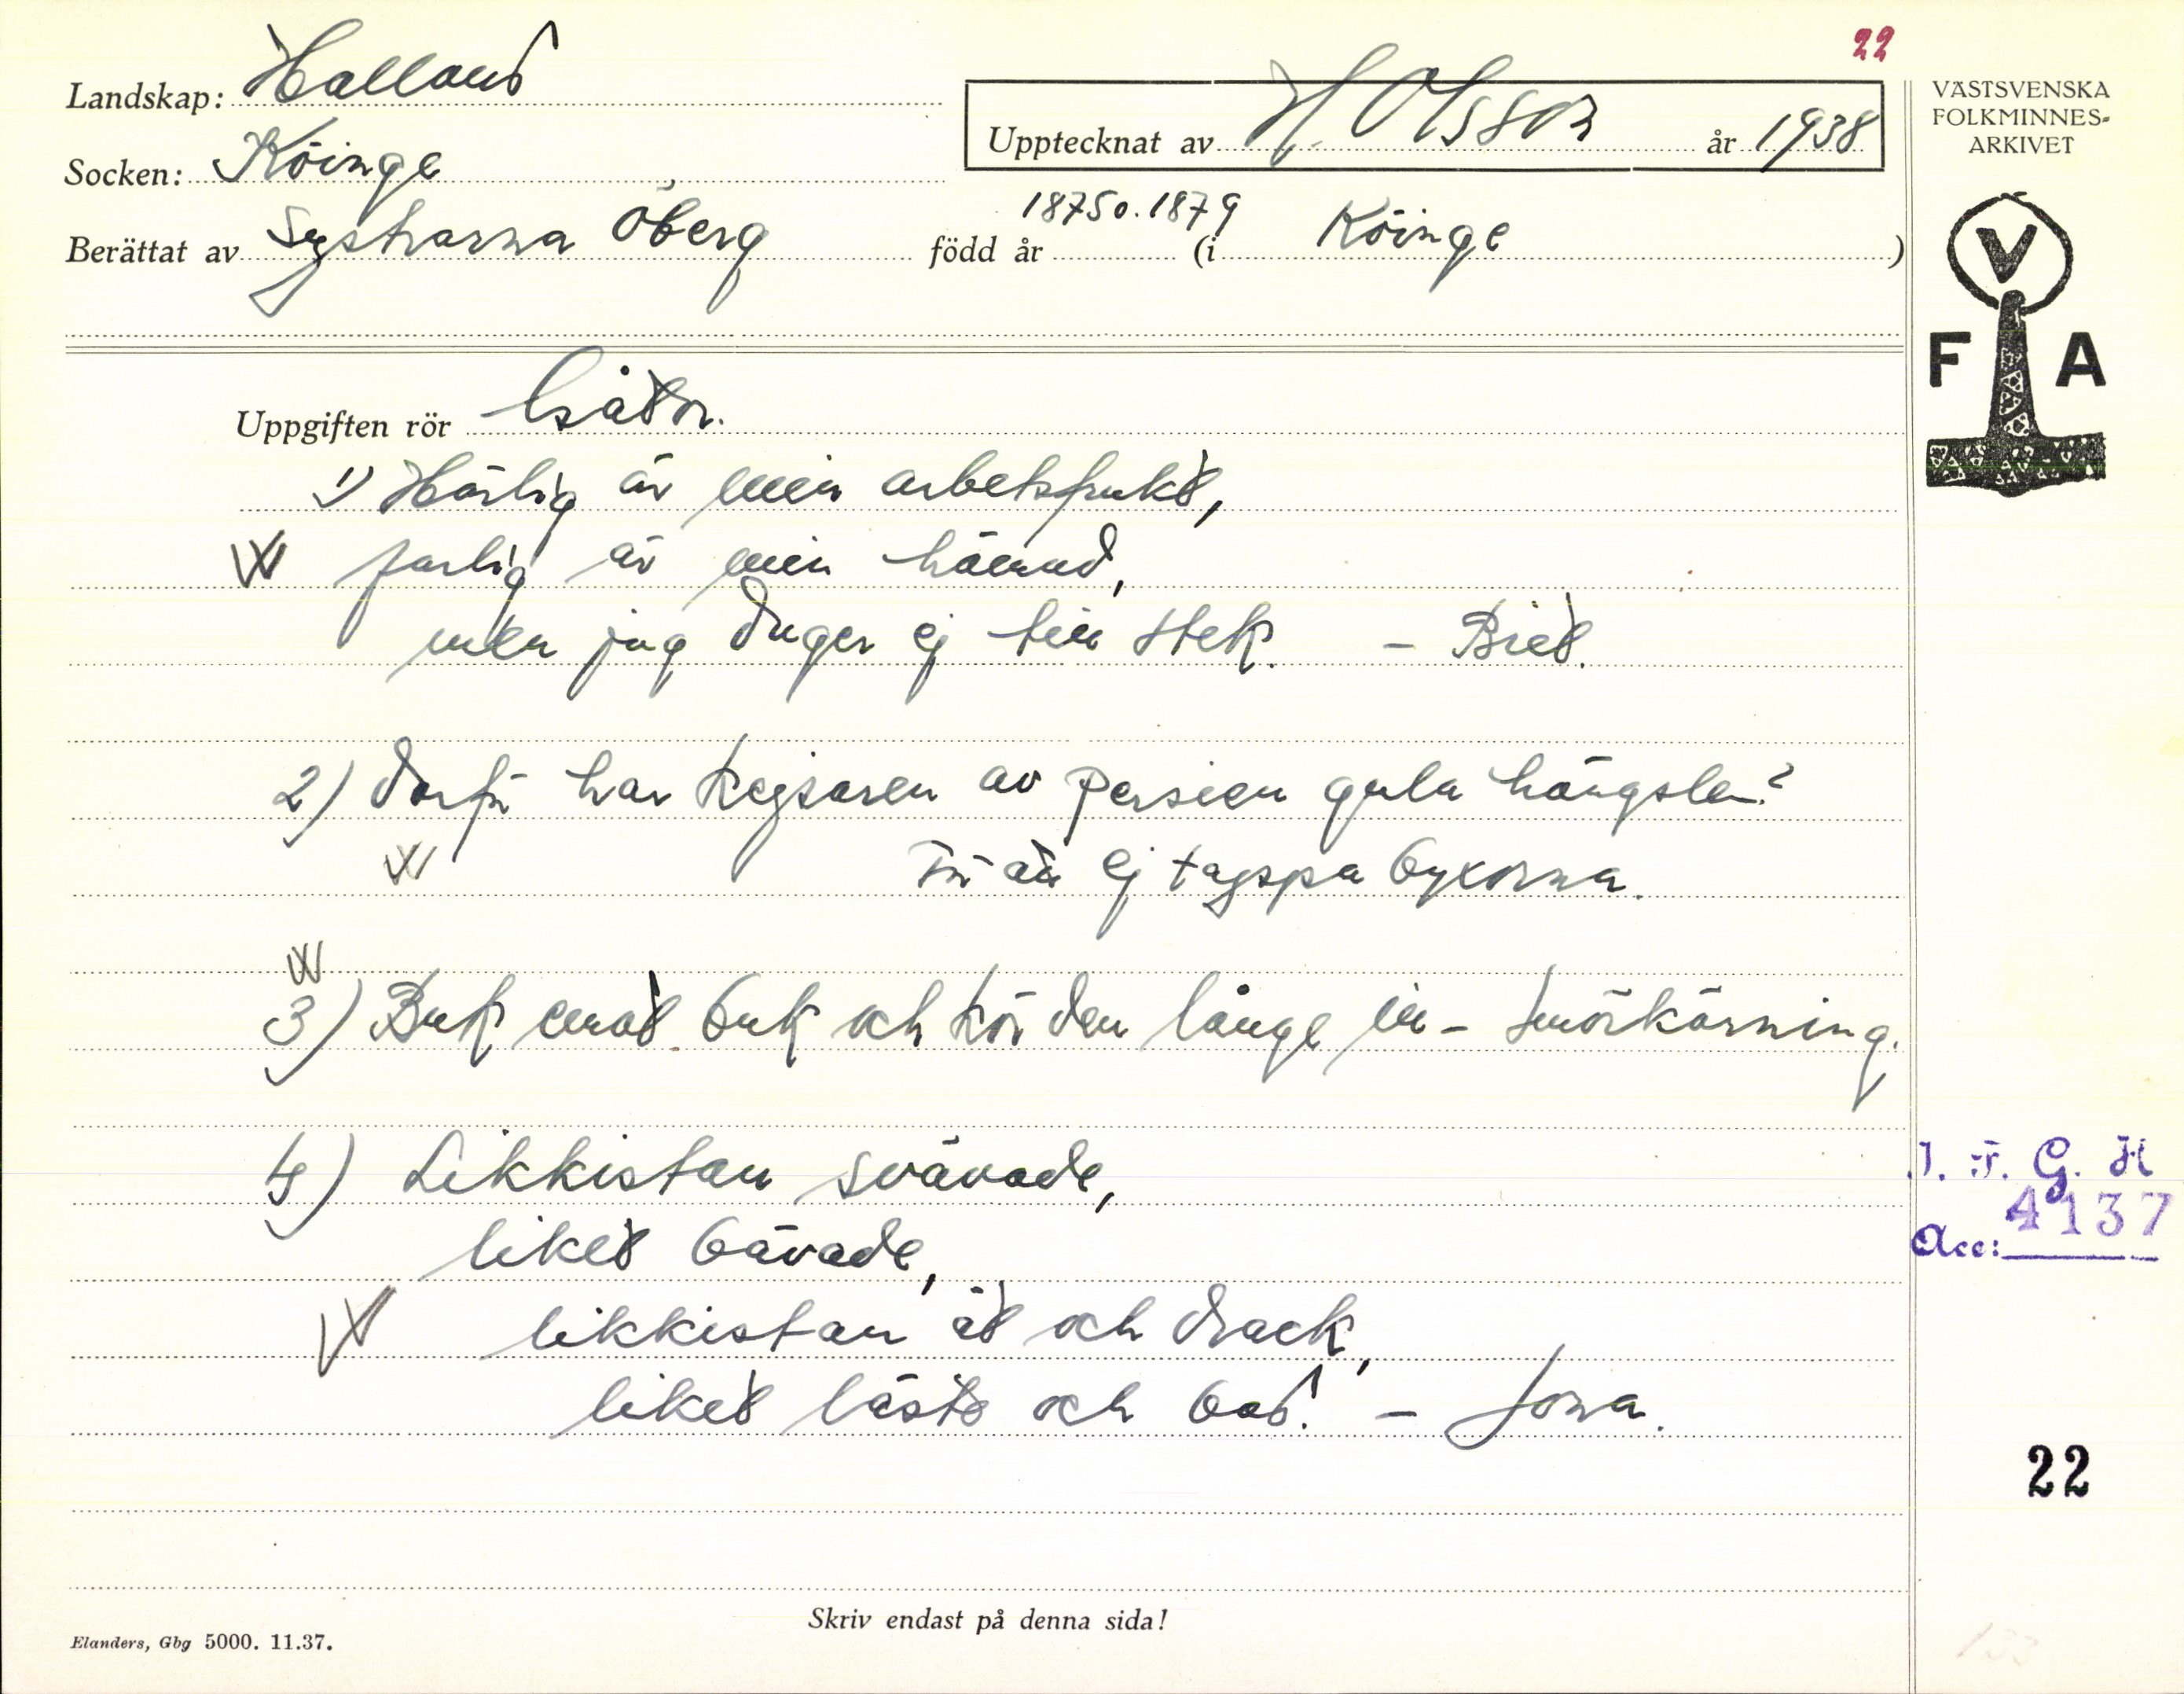 22
Landskap: Halland
Upptecknat av H. Olsson år 1938
Socken: Köinge
Berättat av Systrarna Öberg född år 1875 o. 1879 (i Köinge)
VÄSTSVENSKA
FOLKMINNES-
ARKIVET
V
F A
Uppgiften rör Gåtor.
1) Härlig är min arbetsfrukt,
farlig är min hämnd,
men jag duger ej till stek. - Biet.
2) Varför har kejsaren av Persien gula hängslen?
För att ej tappa byxorna.
3) Buk emot buk och kör den långe in - Smörkärning.
4) Likkistan svävade,
liket bävade,
likkistan åt och drack,
liket läste och bad. - Jona.
I. F. G. H
4137
Acc:
22
Skriv endast på denna sida!
Elanders, Gbg 5000. 11.37.